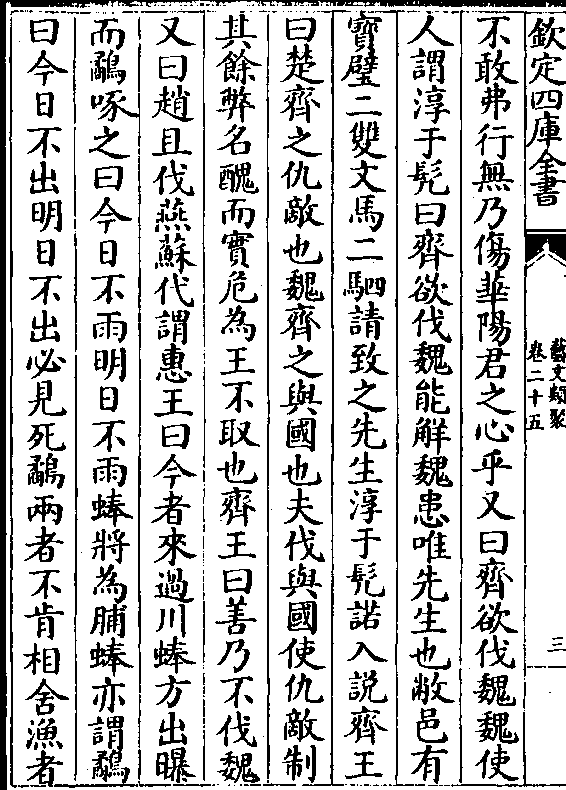 欽定四庫全書
藝文類聚
卷二十五
三
不敢弗行無乃傷華陽君之心乎又曰齊欲伐魏魏使
人謂淳于髠曰齊欲伐魏能解魏患唯先生也敝邑有
寳璧二雙文馬二駟請致之先生淳于髠諾入説齊王
曰楚齊之仇敵也魏齊之與國也夫伐與國使仇敵制
其餘弊名醜而實危為王不取也齊王曰善乃不伐魏
又曰趙且伐燕蘇代謂惠王曰今者來過川蜯方出曝
而鷸啄之曰今日不雨明日不雨蜯將為脯蜯亦謂鷸
曰今日不出明日不出必見死鷸兩者不肯相舍漁者